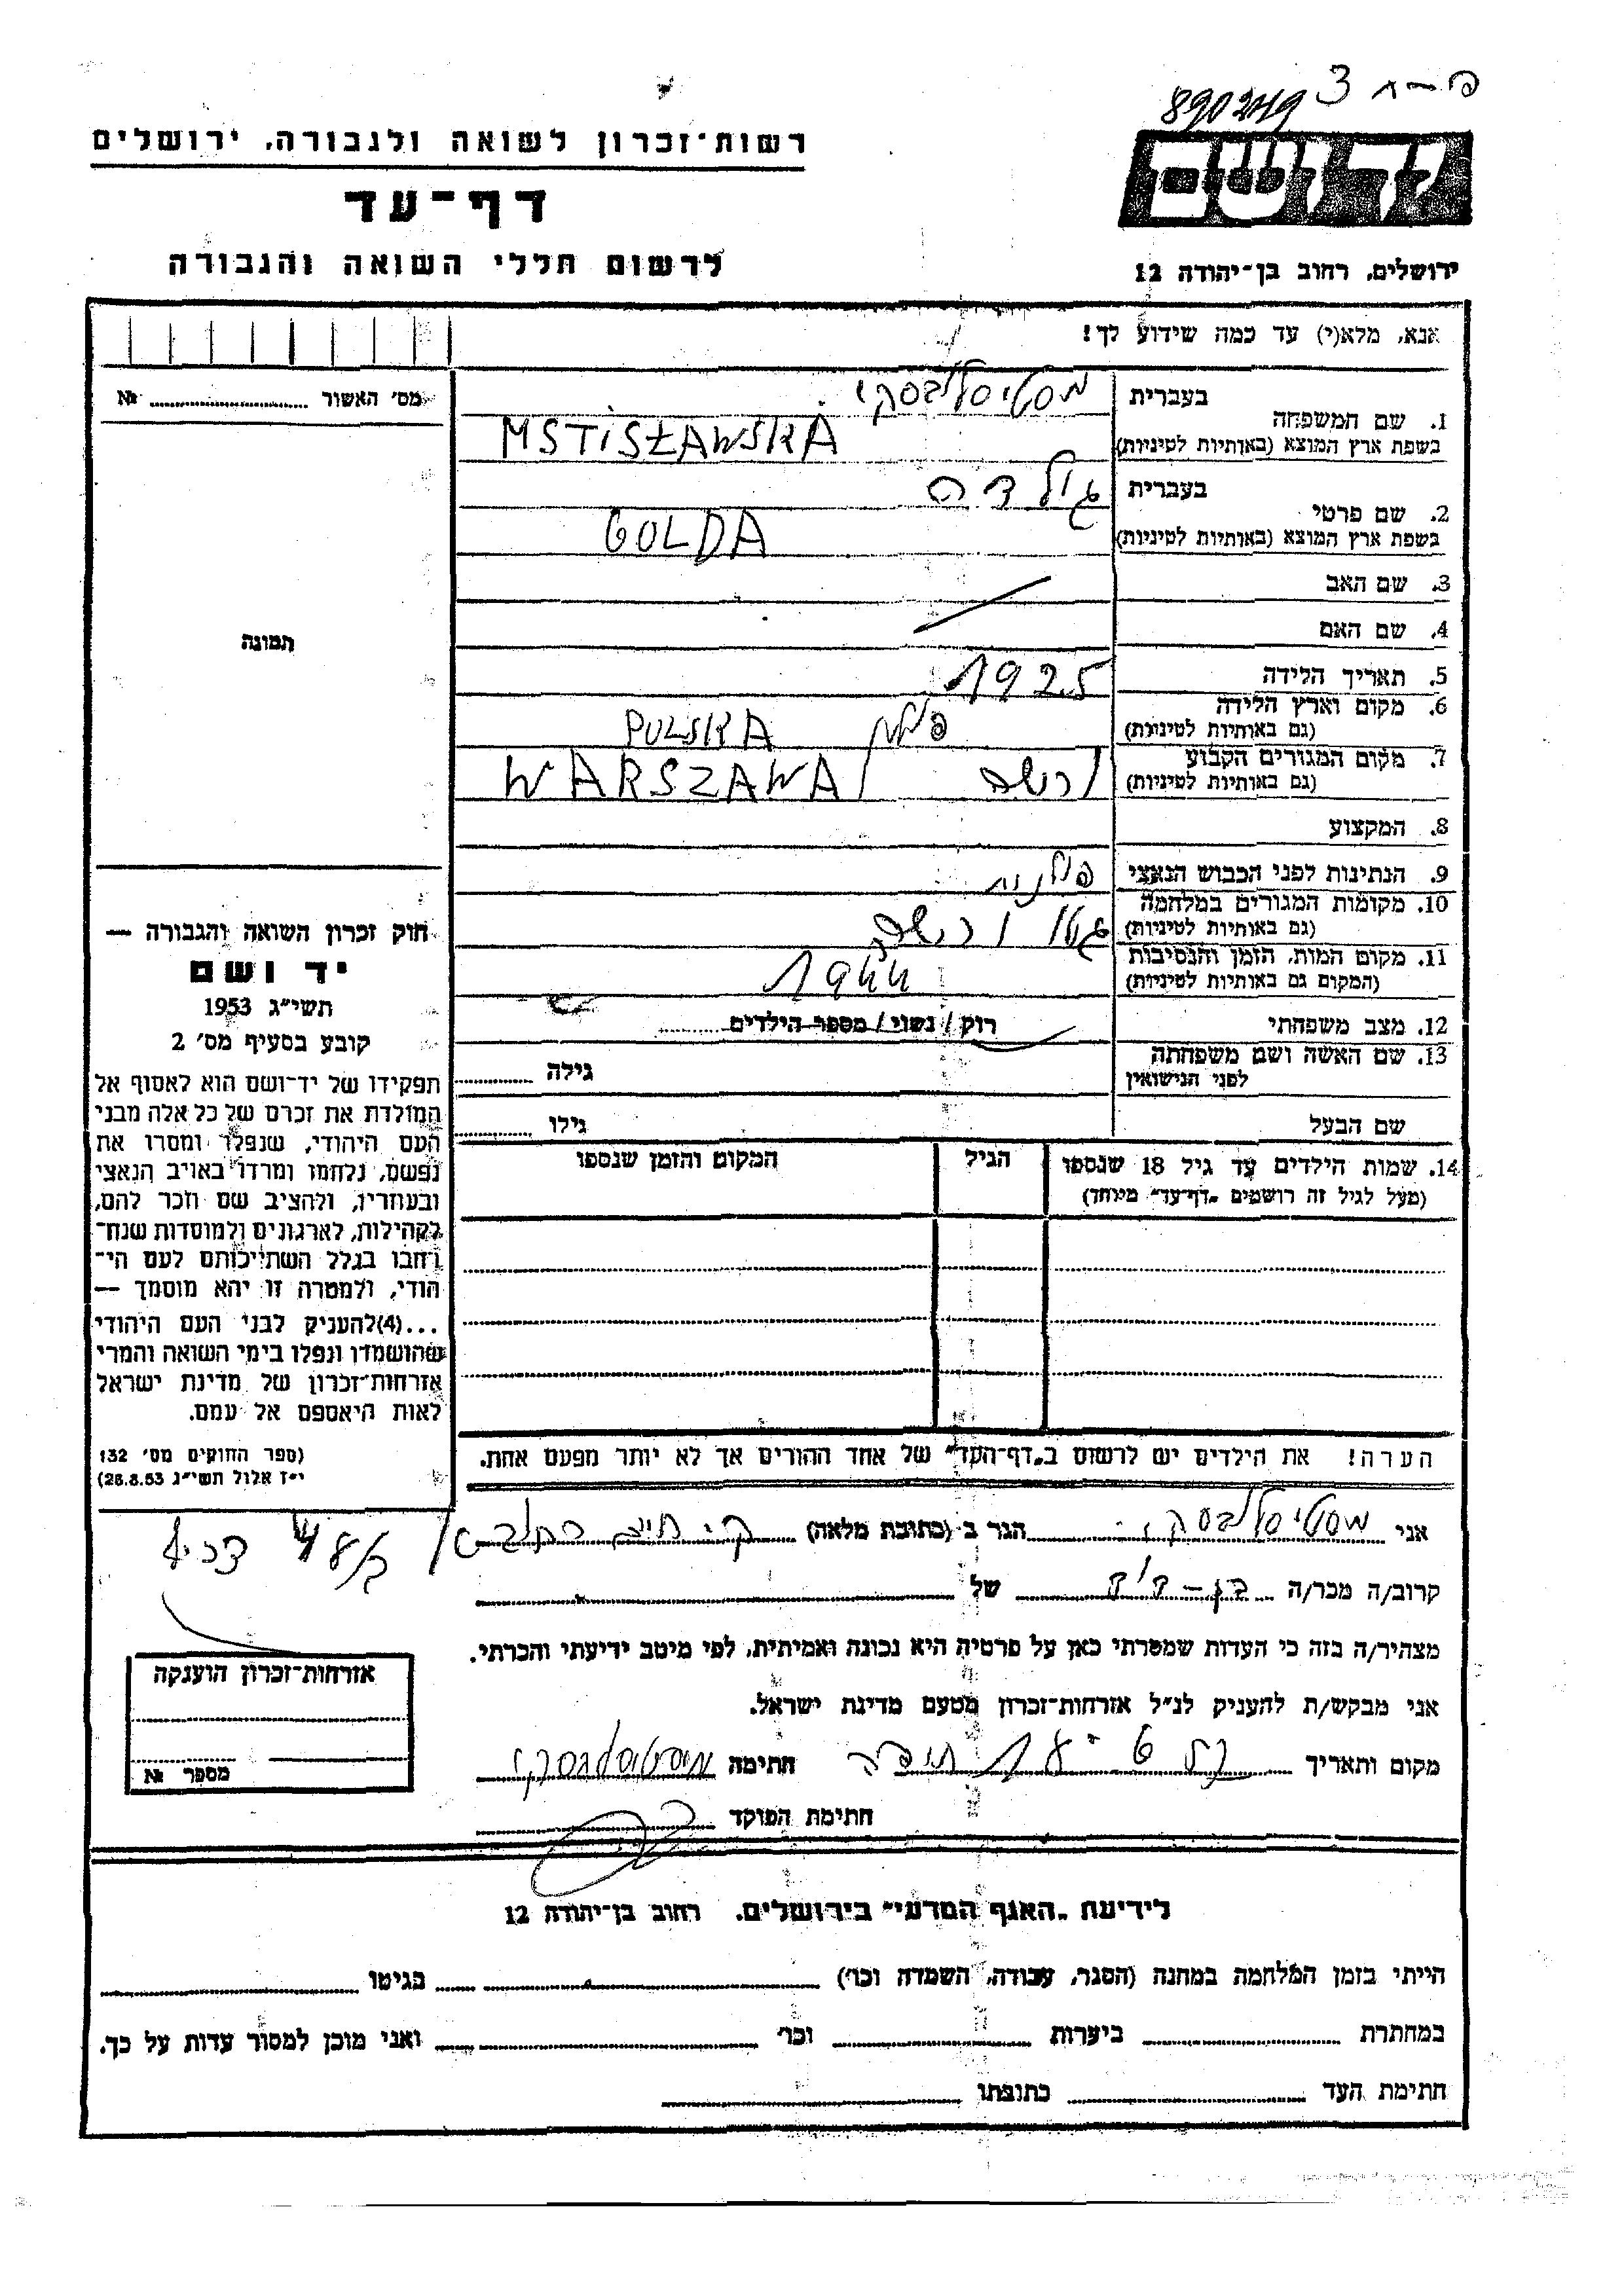 פ–ח 3
890249
יד ושם
ירושלים, רחוב בן־יהודה 12
רשות־זכרון לשואה ולגבורה, ירושלים
דף־עד
לרשום חללי השואה והגבורה
אנא, מלא(י) עד כמה שידוע לך!
מס׳ האשור № 
בעברית מסטיסלבסקי
1. שם המשפחה
בשפת ארץ המוצא (באותיות לטיניות) MSTISŁAWSKA
בעברית גולדה
2. שם פרטי
בשפת ארץ המוצא (באותיות לטיניות) GOLDA
3. שם האב
4. שם האם
5. תאריך הלידה 1925
6. מקום וארץ הלידה פולין POLSKA
(גם באותיות לטיניות)
7. מקום המגורים הקבוע ורשה WARSZAWA
(גם באותיות לטיניות)
8. המקצוע
9. הנתינות לפני הכבוש הנאצי פולנית
10. מקומות המגורים במלחמה גטו ורשה
(גם באותיות לטיניות)
11. מקום המות, הזמן והנסיבות 1944
(המקום גם באותיות לטיניות)
12. מצב משפחתי רוק / נשוי / מספר הילדים
13. שם האשה ושם משפחתה גילה
לפני הנישואין
שם הבעל גילו
14. שמות הילדים עד גיל 18 שנספו הגיל המקום והזמן שנספו
(מעל לגיל זה רושמים „דף־עד״ מיוחד)
תמונה
חוק זכרון השואה והגבורה —
יד ושם
תשי״ג 1953
קובע בסעיף מס׳ 2
תפקידו של יד־ושם הוא לאסוף אל
המולדת את זכרם של כל אלה מבני
העם היהודי, שנפלו ומסרו את
נפשם, נלחמו ומרדו באויב הנאצי
ובעוזריו, ולהציב שם וזכר להם,
לקהילות, לארגונים ולמוסדות שנח־
רחבו בגלל השתייכותם לעם הי־
הודי, ולמטרה זו יהא מוסמך —
...(4)להעניק לבני העם היהודי
שהושמדו ונפלו בימי השואה והמרי
אזרחות־זכרון של מדינת ישראל
לאות היאספם אל עמם.
(ספר החוקים מס׳ 132
י״ז אלול תשי״ג 28.8.53)
הערה! את הילדים יש לרשום ב„דף־העד״ של אחד ההורים אך לא יותר מפעם אחת.
אני מסטיסלבסקי הגר ב (כתובת מלאה)
קרוב/ה מכר/ה בן-דוד של
מצהיר/ה בזה כי העדות שמסרתי כאן על פרטיה היא נכונה ואמיתית, לפי מיטב ידיעתי והכרתי.
אני מבקש/ת להעניק לנ״ל אזרחות־זכרון מטעם מדינת ישראל.
מקום ותאריך חתימה מיסטיסלבסקי
חתימת הפוקד
אזרחות־זכרון הוענקה
מספר №
לידיעת „האגף המדעי״ בירושלים, רחוב בן־יהודה 12
הייתי בזמן המלחמה במחנה (הסגר, עבודה, השמדה וכו׳) בגיטו
במחתרת ביערות וכו׳ ואני מוכן למסור עדות על כך.
חתימת העד כתובתו